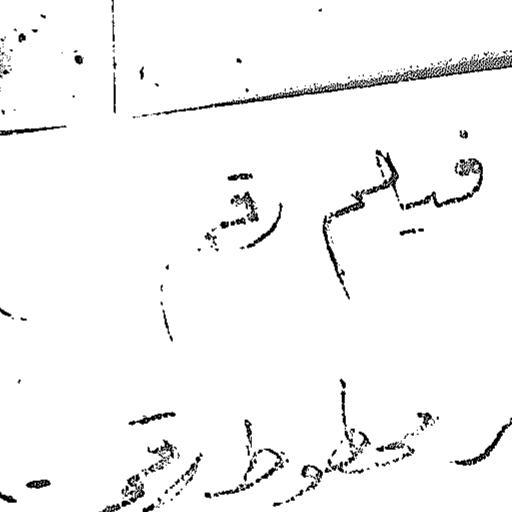 فيلم رقم
مخطوط رقم